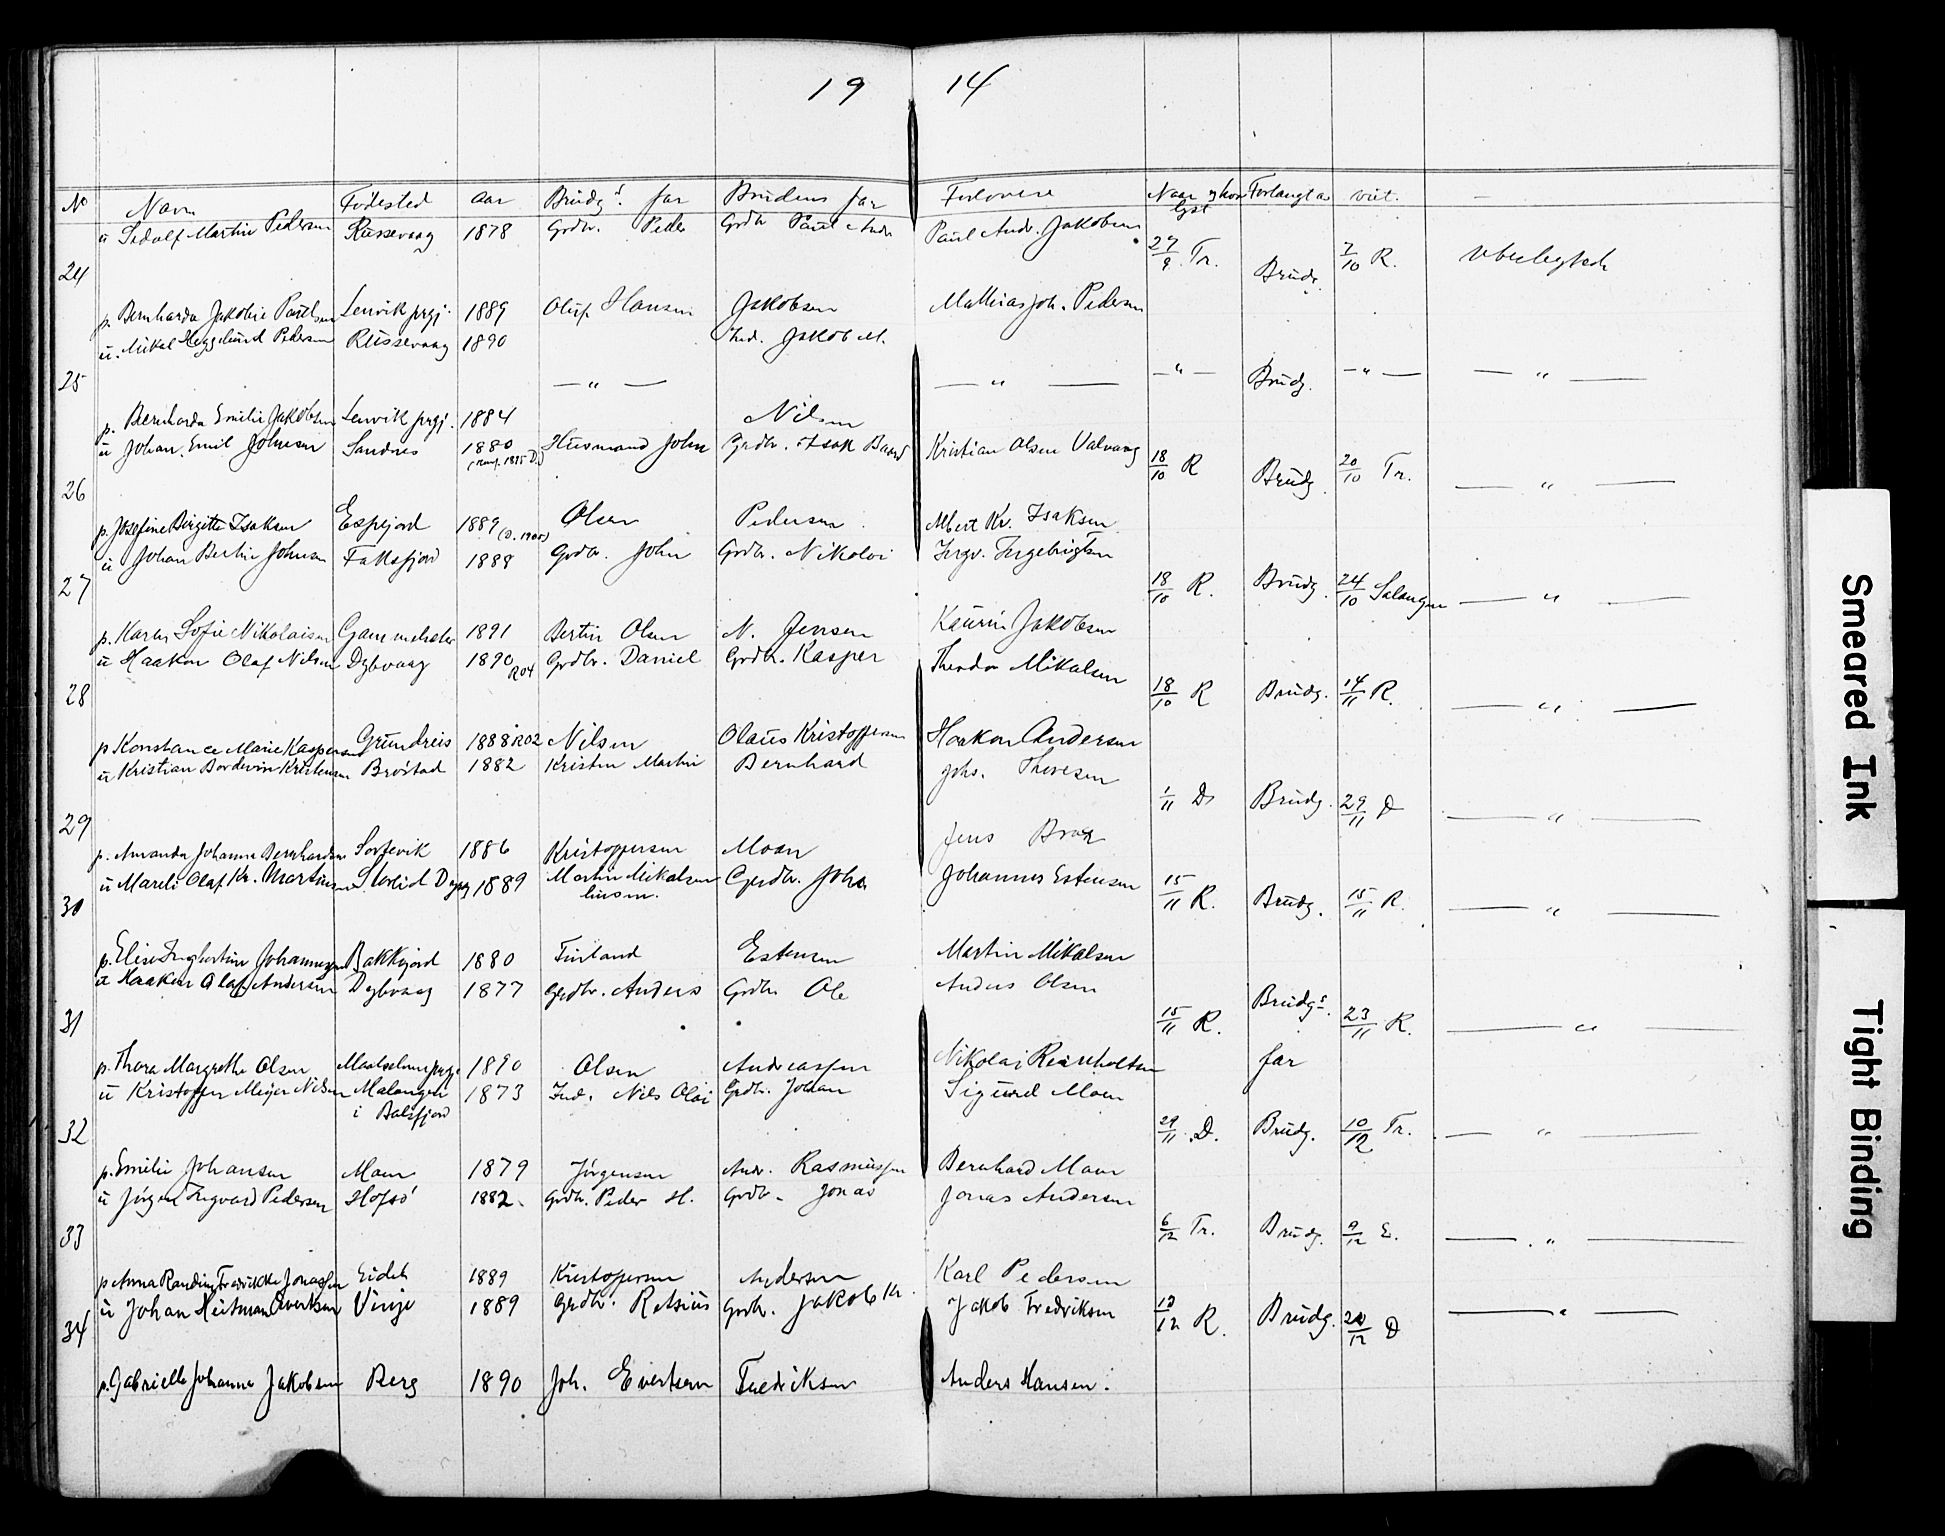 19 14
No Navn Fødested Aar Brudgs far Brudens far Forlovere Naar og hvor lyst Forlangt av viet. -
u Sedolf Martin Pedersen Russevaag 1878 Grdbr. Peder Grdbr Paul Andr Paul Andr. Jakobsen
24 27/9 Tr. Brudg. 7/10 R.
p. Bernharda Jakobie Paulsen Lenvik prgj. 1889 Oluf Hansen Jakobsen Mathias Joh. Pedersen
u. Mikal Heggelund Pedersen Russevaag 1890 Ind. Jakob M.
25 — " — — " — — " — Brudg. — " — — " —
p. Bernharda Emilie Jakobsen Lenvik prgj. 1884 Nilsen
u Johan Emil Johnsen Sandnes 1880 Husmand John Grdbr. Isak Baard Kristian Olsen Valvaag
26 18/10 R Brudg. 20/10 Tr. — " —
p. Josefine Birgitte Isaksen Espejord 1889 (D. 1905) Olsen Pedersen Albert Kr. Isaksen
u Johan Bertin Johnsen Faksfjord 1888 Grdbr. John Grdbr. Nikolai Ingv. Ingebrigtsen
27 18/10 R. Brudg. 24/10 Salangen — " —
p. Karen Sofie Nikolaisen 1891 Bertin Olsen N. Jensen Kaurin Jakobsen
u Haakon Olaf Nilsen Dybvaag 1890 R04 Grdbr. Daniel Grdbr. Kasper Theodor Mikalsen
28 18/10 R Brudg. 14/11 R. — " —
p Konstance Marie Kaspersen Grundreis 1888 R02 Nilsen Olaus Kristoffersen Haakon Andersen
u Kristian Bordevin Kristensen Brøstad 1882 Kristen Martin Bernhard Johs. Thoresen
29 1/11 D Brudg. 29/11 D — " —
p. Amanda Johanna Bernhardsen Sørfevik 1886 Kristoffersen Moan Jens
u Mareli Olaf Kr. Martinsen 1889 Martin Mikalsen Grdbr. Johs Johannes Estensen
30 15/11 R. Brudg. 15/11 R. — " —
p. Elise Ingbertine Johannesen Bakkejord 1880 Finland Estensen Martin Mikalsen
u Haakon Olaf Andersen Dybvaag 1877 Grdbr. Anders Grdbr Ole Anders Olsen
31 15/11 R. Brudgs far 23/11 R. — " —
p. Thora Margrethe Olsen Maalselven prgj. 1890 Olsen Andreassen Nikolai Reinholtsen
u Kristoffer Meyer Nilsen Malangen i Balsfjord 1873 Ind. Nils Olai Grdbr. Johan Sigurd Moen
32 29/11 D. Brudg. 10/12 Tr. — " —
p. Emilie Johansen Moen 1879 Jörgensen Andr. Rasmussen Bernhard Moen
u Jörgen Ingvard Pedersen Hofsö 1882 Grdbr. Peder H. Grdbr. Jonas Jonas Andersen
33 6/12 Tr. Brudg. 9/12 E. — " —
p Anna Randine Fredrikke Jonassen Eideh 1889 Kristoffersen Andersen Karl Pedersen
u Johan Heitman Evertsen Vinje 1889 Grdbr. Retsius Grdbr. Jakob Kr. Jakob Fredriksen
34 13/12 R. Brudg. 20/12 D — " —
p. Gabrielle Johanna Jakobsen Berg 1890 Joh. Evertsen Fredriksen Anders Hansen.
Smeared Ink
Tight Binding